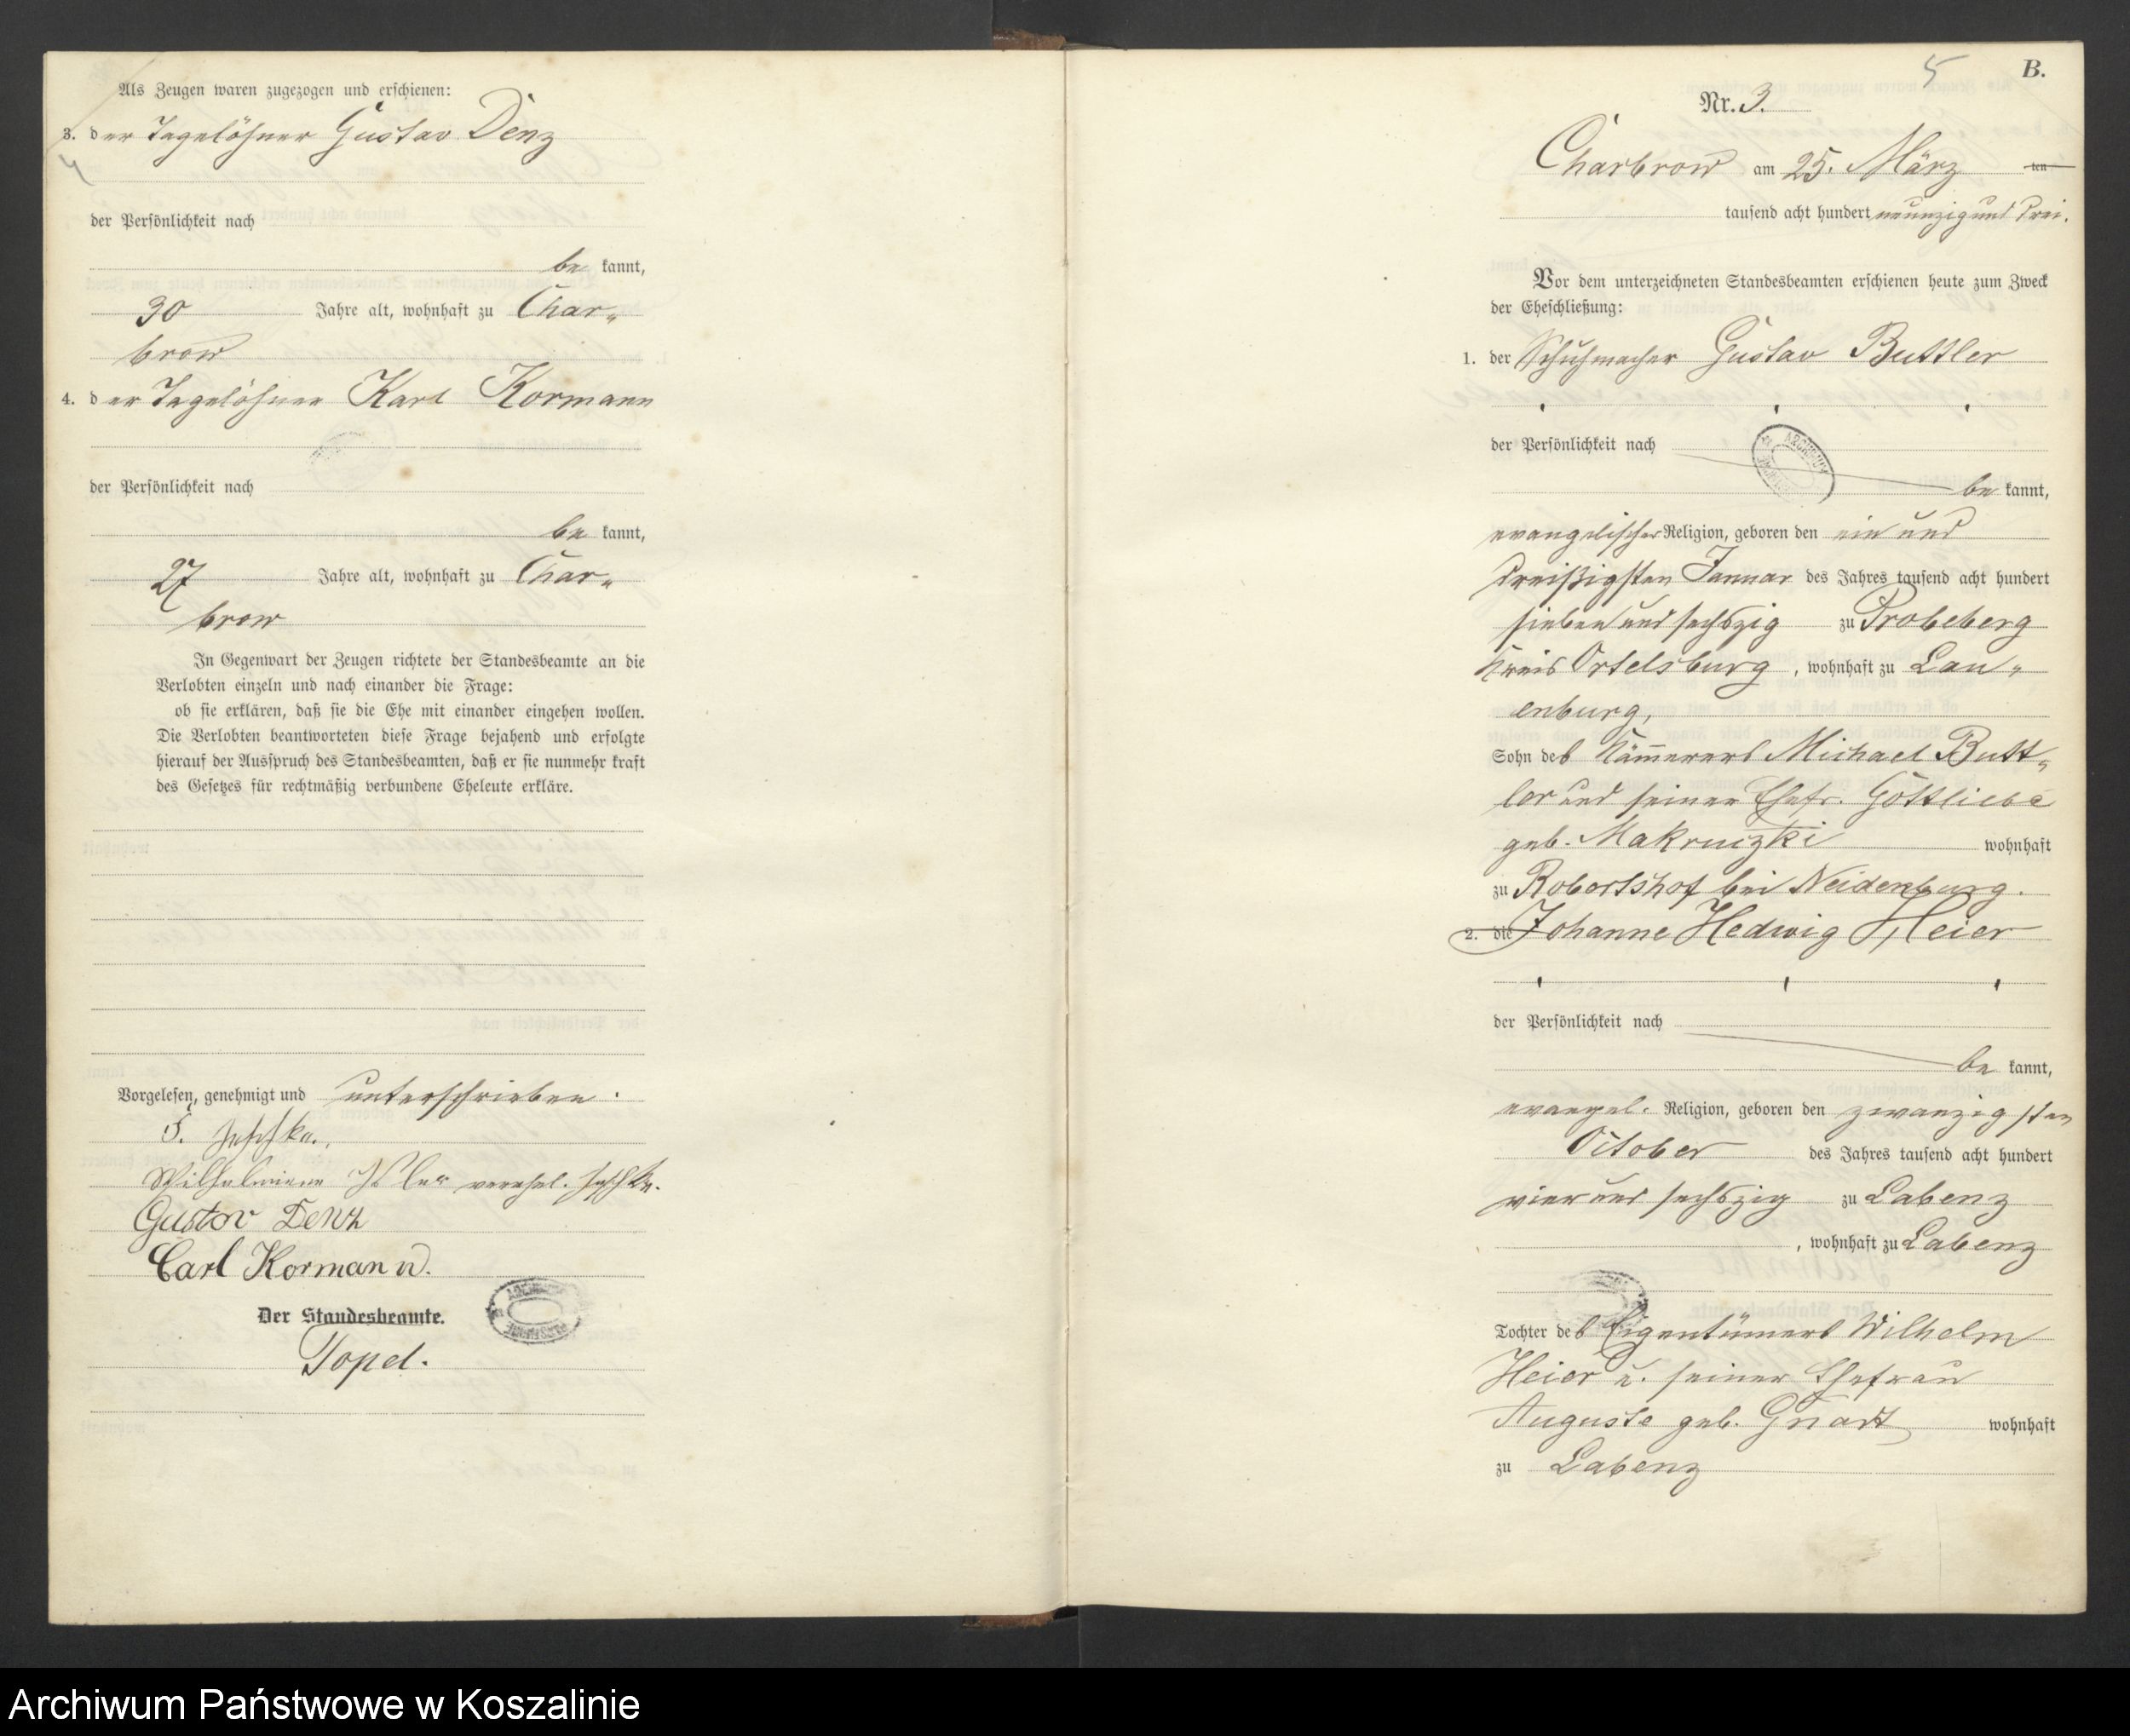 Als Zeugen waren zugezogen und erschienen:
3. der Tagelöhner Gustav Denz
4
der Persönlichkeit nach
be kannt,
30 Jahre alt, wohnhaft zu Char-
brow
4. der Tagelöhner Karl Kormann
der Persönlichkeit nach
be kannt,
27 Jahre alt, wohnhaft zu Char-
brow
In Gegenwart der Zeugen richtete der Standesbeamte an die
Verlobten einzeln und nach einander die Frage:
ob sie erklären, daß sie die Ehe mit einander eingehen wollen.
Die Verlobten beantworteten diese Frage bejahend und erfolgte
hierauf der Ausspruch des Standesbeamten, daß er sie nunmehr kraft
des Gesetzes für rechtmäßig verbundene Eheleute erkläre.
Vorgelesen, genehmigt und unterschrieben.
Wilhelmiene verehel.
Gustov Denz
Carl Kormann.
Der Standesbeamte.
Topel.
5 B.
Nr. 3.
Charbrow am 25. März ten
tausend acht hundert neunzig und drei.
Vor dem unterzeichneten Standesbeamten erschienen heute zum Zweck
der Eheschließung:
1. der Schuhmacher Gustav Buttler
der Persönlichkeit nach
ARCHIWUM
be kannt,
evangelischer Religion, geboren den ein und
dreißigsten Januar des Jahres tausend acht hundert
sieben und sechszig zu Probeberg
Kreis Ortelsburg, wohnhaft zu Lau-
enburg,
Sohn des Kämmerers Michael Butt-
ler und seiner Ehefr. Gottliebe
geb. Makruczki wohnhaft
zu Robertshof bei Neidenburg.
2. die Johanne Hedwig Heier
der Persönlichkeit nach
be kannt,
evangel. Religion, geboren den zwanzigsten
October des Jahres tausend acht hundert
vier und sechszig zu Labenz
, wohnhaft zu Labenz
Tochter des Eigentümers Wilhelm
Heier u. seiner Ehefrau
Auguste geb. Gnadt wohnhaft
zu Labenz
Archiwum Państwowe w Koszalinie